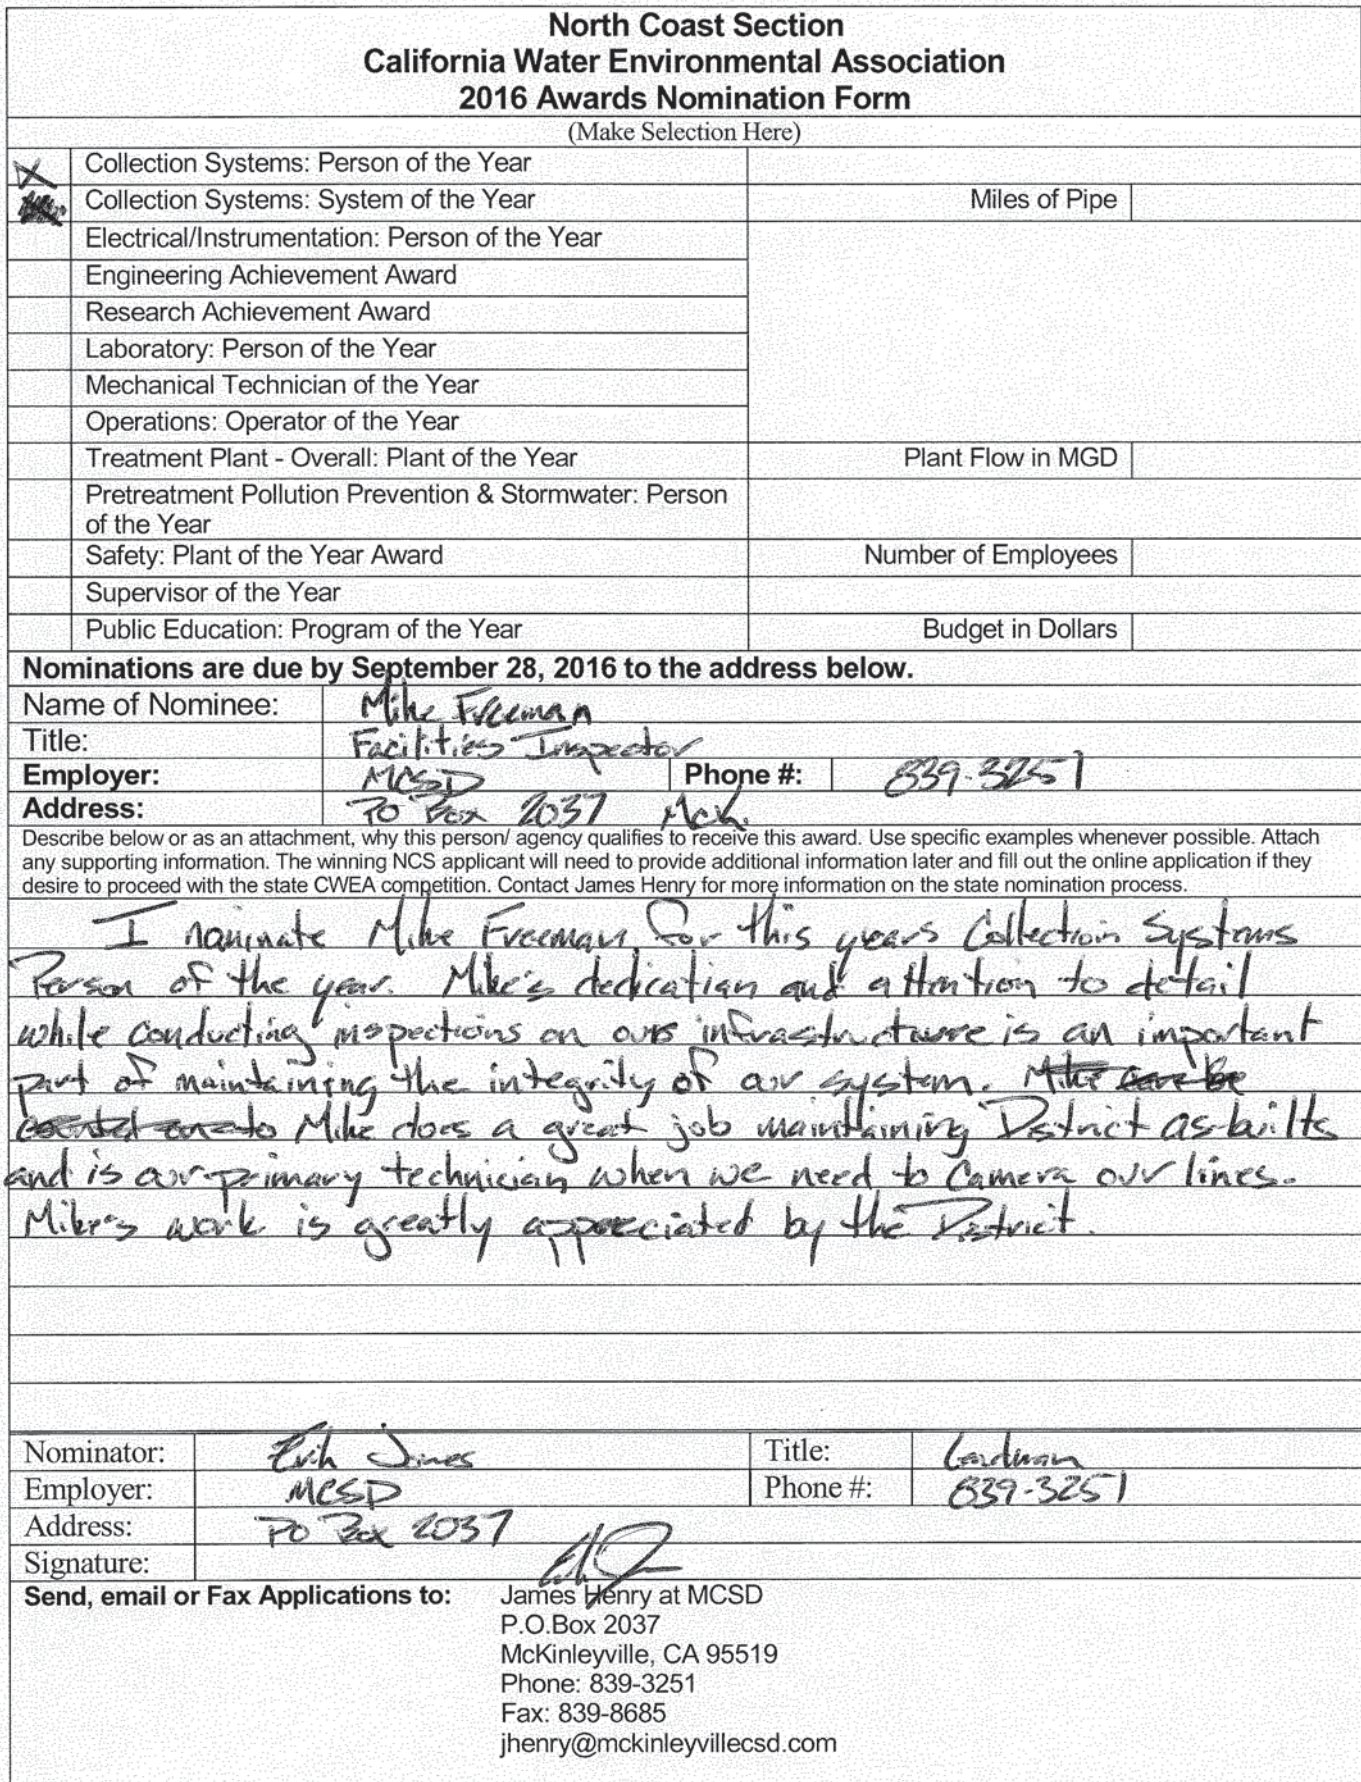 North Coast Section
California Water Environmental Association
2016 Awards Nomination Form
(Make Selection Here)
X Collection Systems: Person of the Year
Collection Systems: System of the Year Miles of Pipe
Electrical/Instrumentation: Person of the Year
Engineering Achievement Award
Research Achievement Award
Laboratory: Person of the Year
Mechanical Technician of the Year
Operations: Operator of the Year
Treatment Plant - Overall: Plant of the Year Plant Flow in MGD
Pretreatment Pollution Prevention & Stormwater: Person
of the Year
Safety: Plant of the Year Award Number of Employees
Supervisor of the Year
Public Education: Program of the Year Budget in Dollars
Nominations are due by September 28, 2016 to the address below.
Name of Nominee: Mike Freeman
Title: Facilities Inspector
Employer: MCSD Phone #: 839-3251
Address: PO Box 2037 McK.
Describe below or as an attachment, why this person/ agency qualifies to receive this award. Use specific examples whenever possible. Attach
any supporting information. The winning NCS applicant will need to provide additional information later and fill out the online application if they
desire to proceed with the state CWEA competition. Contact James Henry for more information on the state nomination process.
I nominate Mike Freeman for this years Collection Systems
Person of the year. Mike's dedication and attention to detail
while conducting inspections on our infrastructure is an important
part of maintaining the integrity of our system. Mike can be
counted on to Mike does a great job maintaining District as-builts
and is our primary technician when we need to Camera our lines.
Mike's work is greatly appreciated by the District.
Nominator: Erik Jones Title:
Employer: MCSD Phone #: 839-3251
Address: PO Box 2037
Signature:
Send, email or Fax Applications to: James Henry at MCSD
P.O.Box 2037
McKinleyville, CA 95519
Phone: 839-3251
Fax: 839-8685
jhenry@mckinleyvillecsd.com